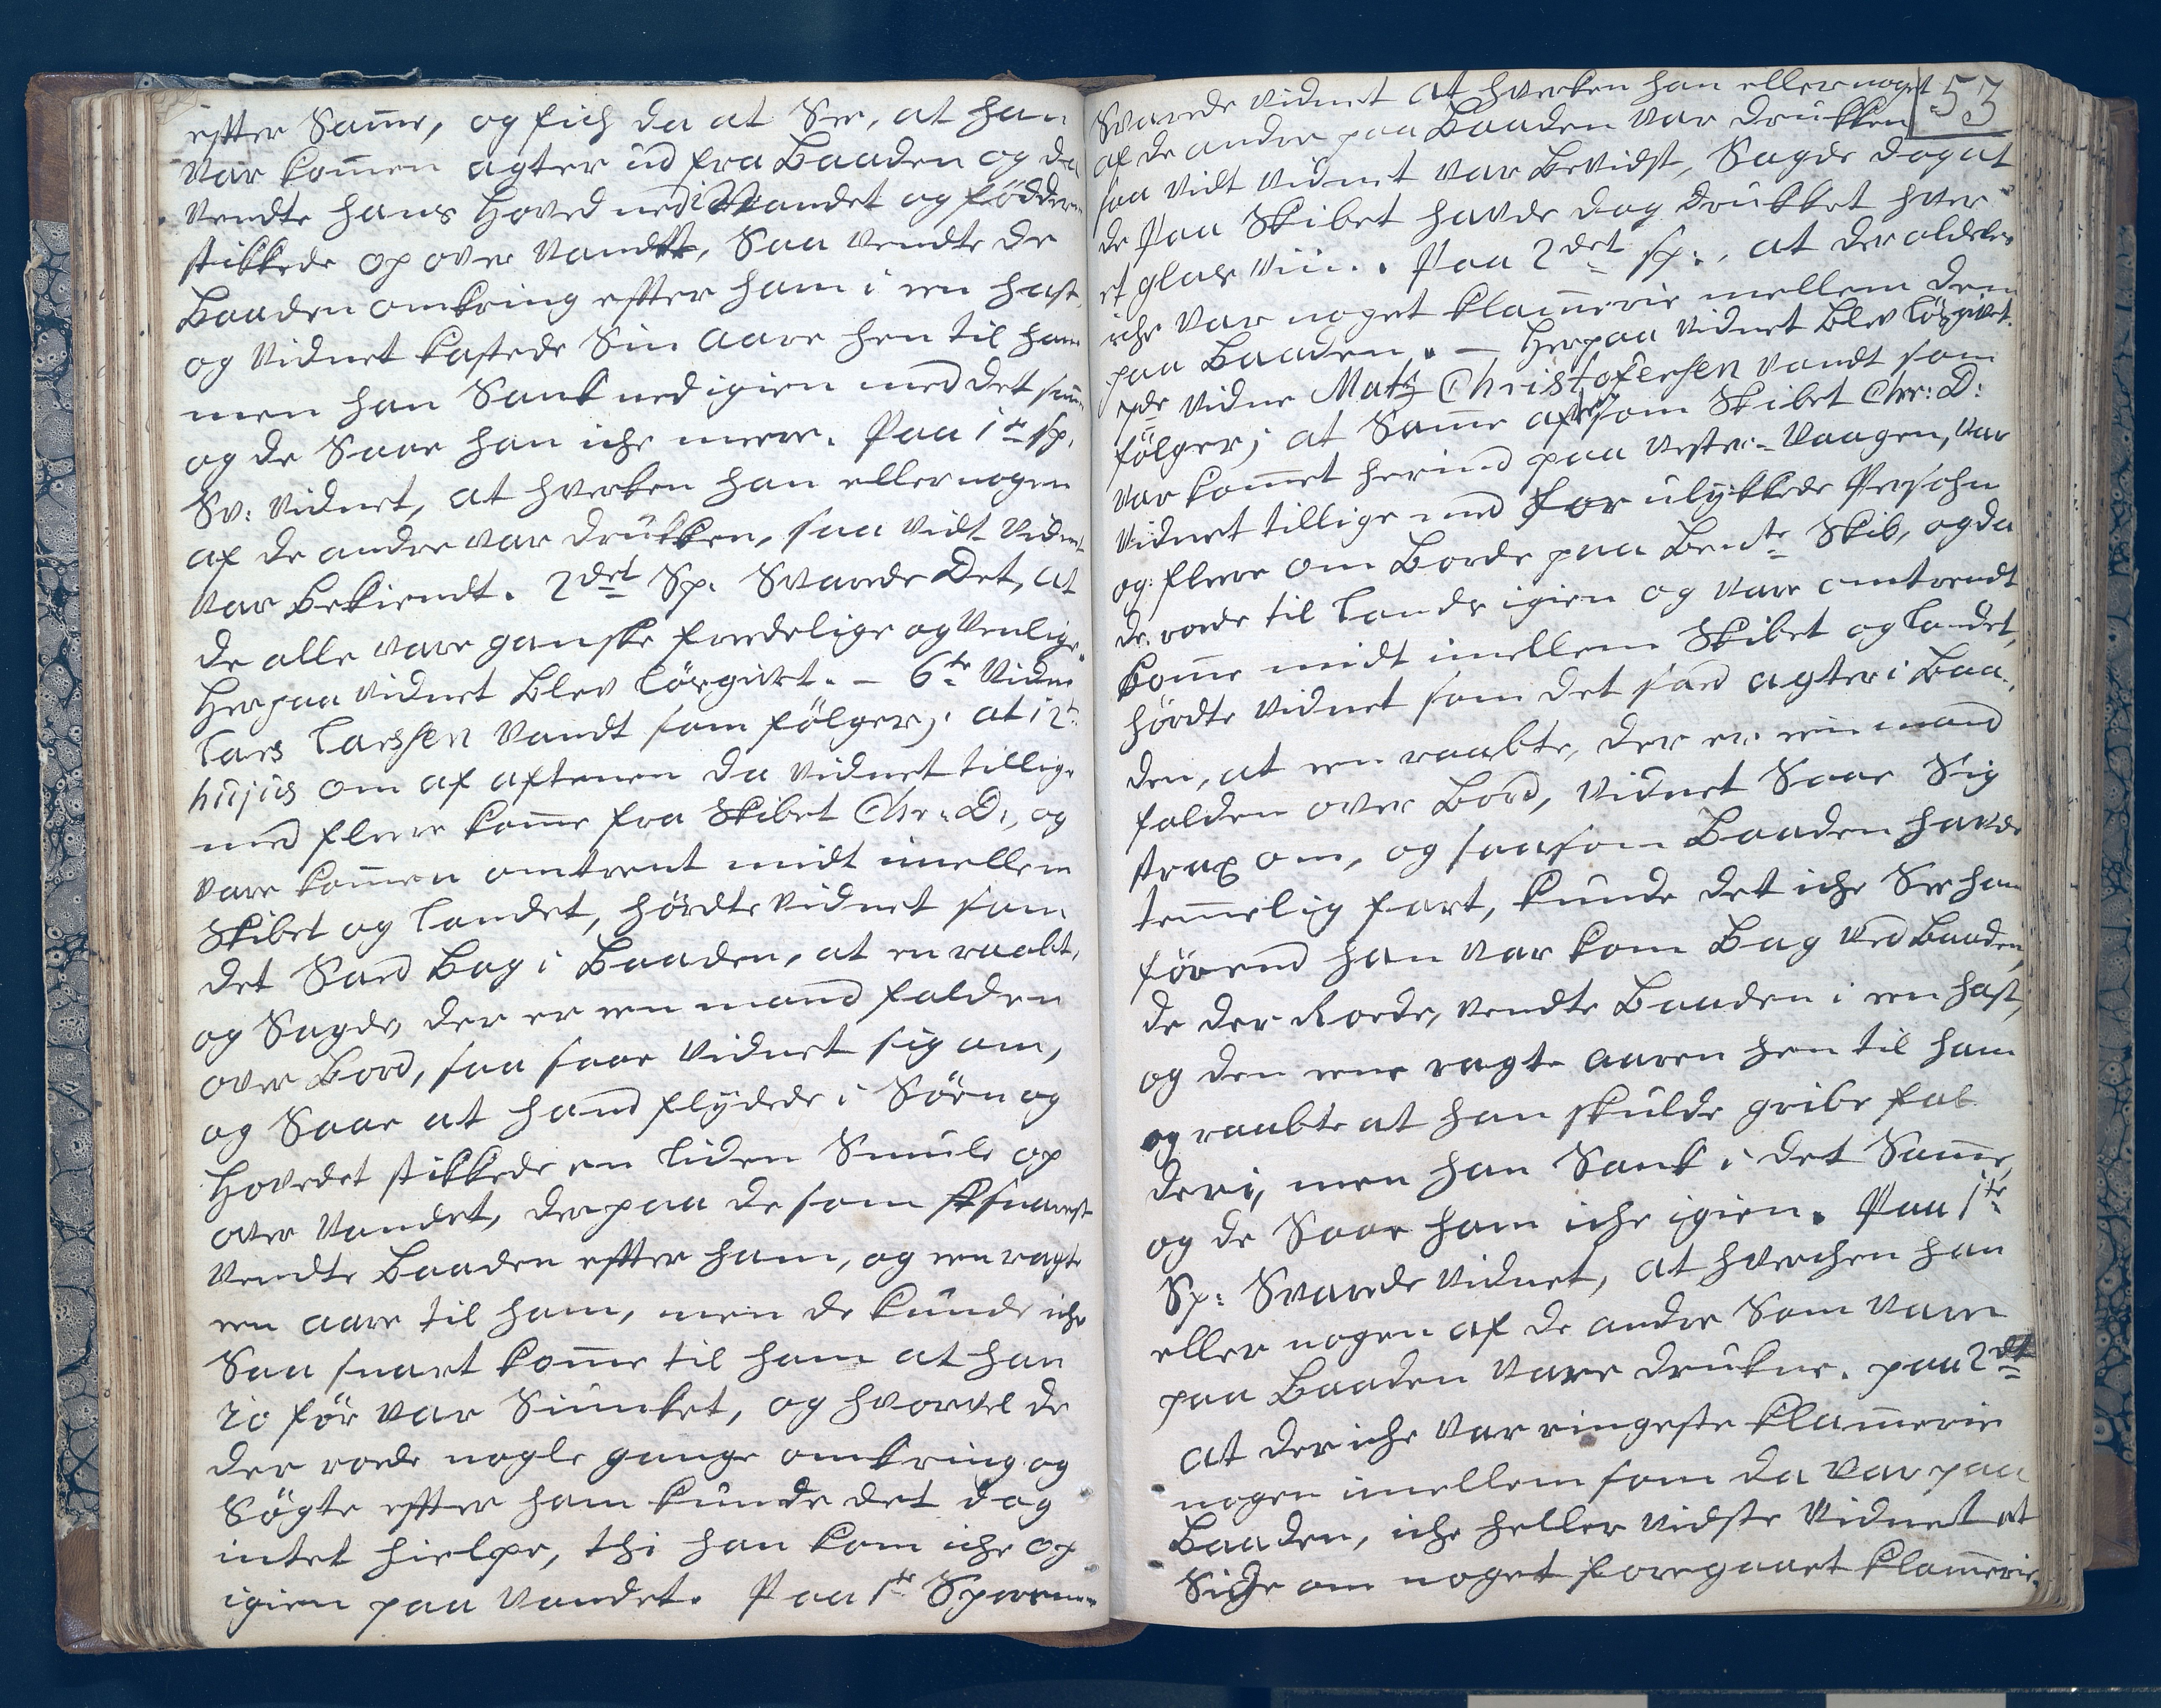 efter Same, og fich da at See, at han
var komen agter ud fra Baaden og da
vendte hans Hoved ned i Vandet og födder
stikkede op over Vandet, Saa vendte de
Baaden omkring efter ham i een hast,
og Vidnet kastede Sin Aare hen til ham
men han Sank ned igien med det same
og de Saae han iche meere. Paa 1te Sp.
Sv: Vidnet, at hverken han eller nogen
af de andre var drukken, saa vidt Vidnet
var bekiendt. 2det Sp. Svarede Det, at
de alle vare ganske fredelige og Venlige.
Herpaa Vidnet blev lösgivet. – 6te Vidne
Lars Larssen Vandt som fölger; at 12te
hujus om af aftenen da Vidnet tillige
med fleere kome fra Skibet Chr: D:, og
vare komen omtrent midt imellem
Skibet og Landet, hördte Vidnet som
det Sad Bag i Baaden, at en raabte
og Sagde, der er een mand falden
over Bord, saa saae Vidnet sig om,
og Saae at hand flydede i Söen og
Hovedet stikkede en liden Smule op
over Vandet, derpaa de som snarest
vendte Baaden efter ham, og een ragte
een aare til ham, men de kunde iche
Saa snart kome til ham at han
io för var Siunket, og hvorvel de
der roede nogle gange omkring og
Sögte efter ham kunde det dog
intet hielpe, thi han kom iche op
igien paa Vandet. Paa 1te Spörsm:
53
Svarede Vidnet at hverken han eller noget
af de andre paa Baaden var drukken
saa vidt Vidnet var bevidst, Sagde dog at
de Paa Skibet havde dog drukket hver
et glas Viin. Paa 2det Sp:, at der aldeles
iche var noget klamerie mellem dem
paa Baaden. – Herpaa Vidnet blev lösgivet.
7de Vidne Matz Christofersen vandt som
fölger; at Same aften som Skibet Chr: D:
var komet herind paa Vester-Vaagen, var
Vidnet tillige med Forulykkede Persohn
og fleere om Borde paa Bemte Skib, og da
de roede til Lands igien og vare omtrendt
kome midt imellem Skibet og Landet,
hördte Vidnet som det sad agter i Baa-
den, at een raabte, der er een mand
falden over Bord, Vidnet Saae Sig
strax om, og saasom Baaden havde
temelig fart, kunde det iche See ham
förend han var kom Bag ved Baaden,
de der Roede, vendte Baaden i een hast,
og den eene ragte aaren hen til ham
og raabte at han skulde gribe fat
deri, men han Sank i det Same,
og de Saae ham iche igien. Paa 1te
Sp: Svarede Vidnet, at hverchen han
eller nogen af de andre Som vare
paa Baaden vare drukne. paa 2det
at der iche var ringeste klamerie
nogen imellem som da var paa
Baaden, iche heller vidste Vidnet at
Sige om noget foregaaet klamerie.